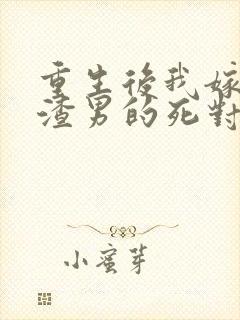 重生後我嫁
渣男的死對
小蜜芽